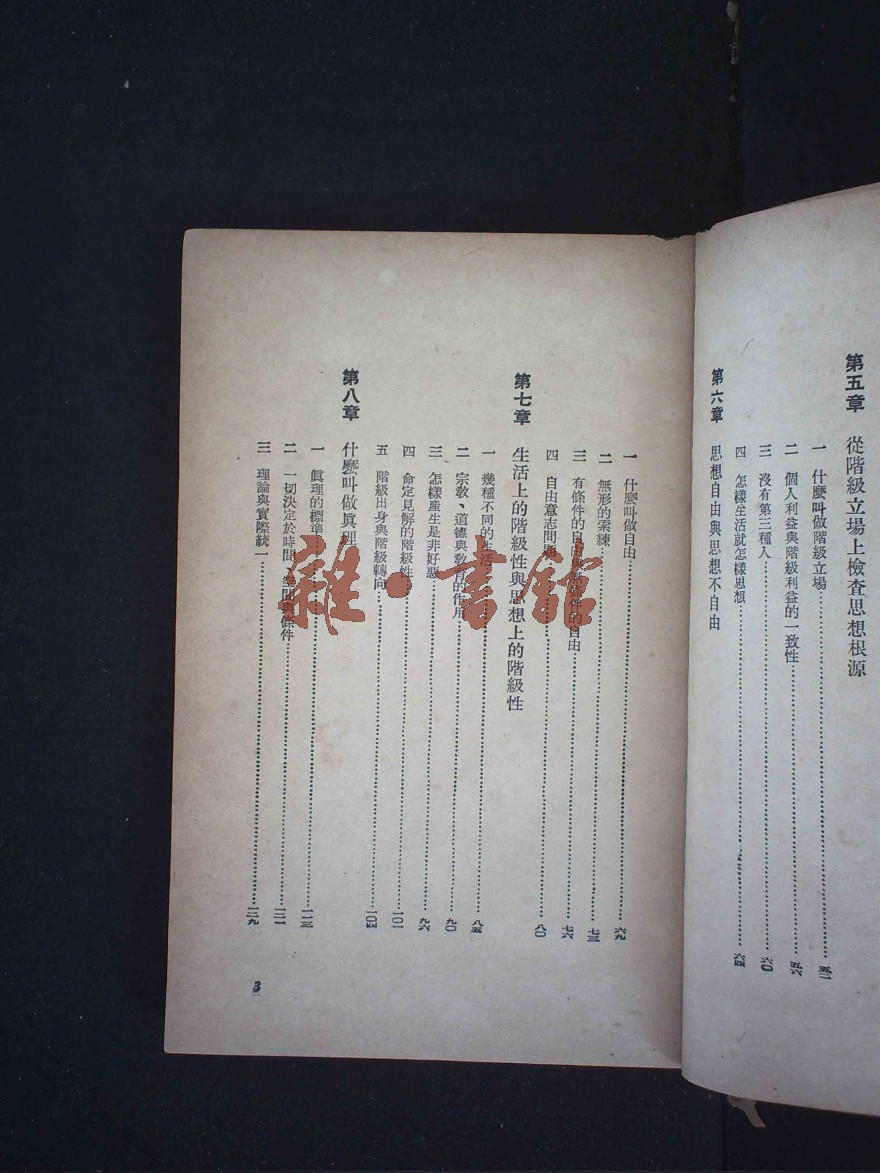 第五章　從階級立場上檢查思想根源
一　什麼叫做階級立場……五二
二　個人利益與階級利益的一致性……五六
三　沒有第三種人……六〇
四　怎樣生活就怎樣思想……六四
第六章　思想自由與思想不自由
一　什麼叫做自由……六九
二　無形的索練……七三
三　有條件的自由與無條件的自由……七六
四　自由意志問題……八〇
第七章　生活上的階級性與思想上的階級性
一　幾種不同的生活……八五
二　宗敎、道德與敎育的作用……九〇
三　怎樣產生是非好惡……九六
四　命定見解的階級性……一〇一
五　階級出身與階級轉向……一〇四
第八章　什麼叫做眞理
一　眞理的標準……一一三
二　一切決定於時間、空間與條件……一二一
三　理論與實際統一……一二九
3
雜·書館